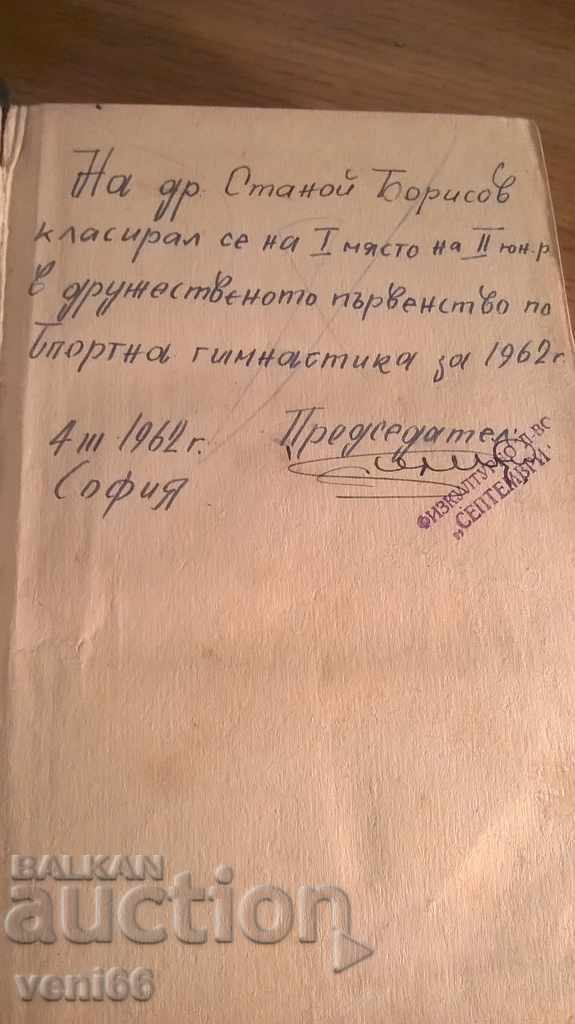 На др. Станой Борисов
класирал се на I място на II юн.р.
в дружественото първенство по
Спортна гимнастика за 1962 г.
4 III 1962 г.
София
Председател:
ФИЗКУЛТУРНО Д-ВО
„СЕПТЕМВРИ“
BALKAN
auction
veni66